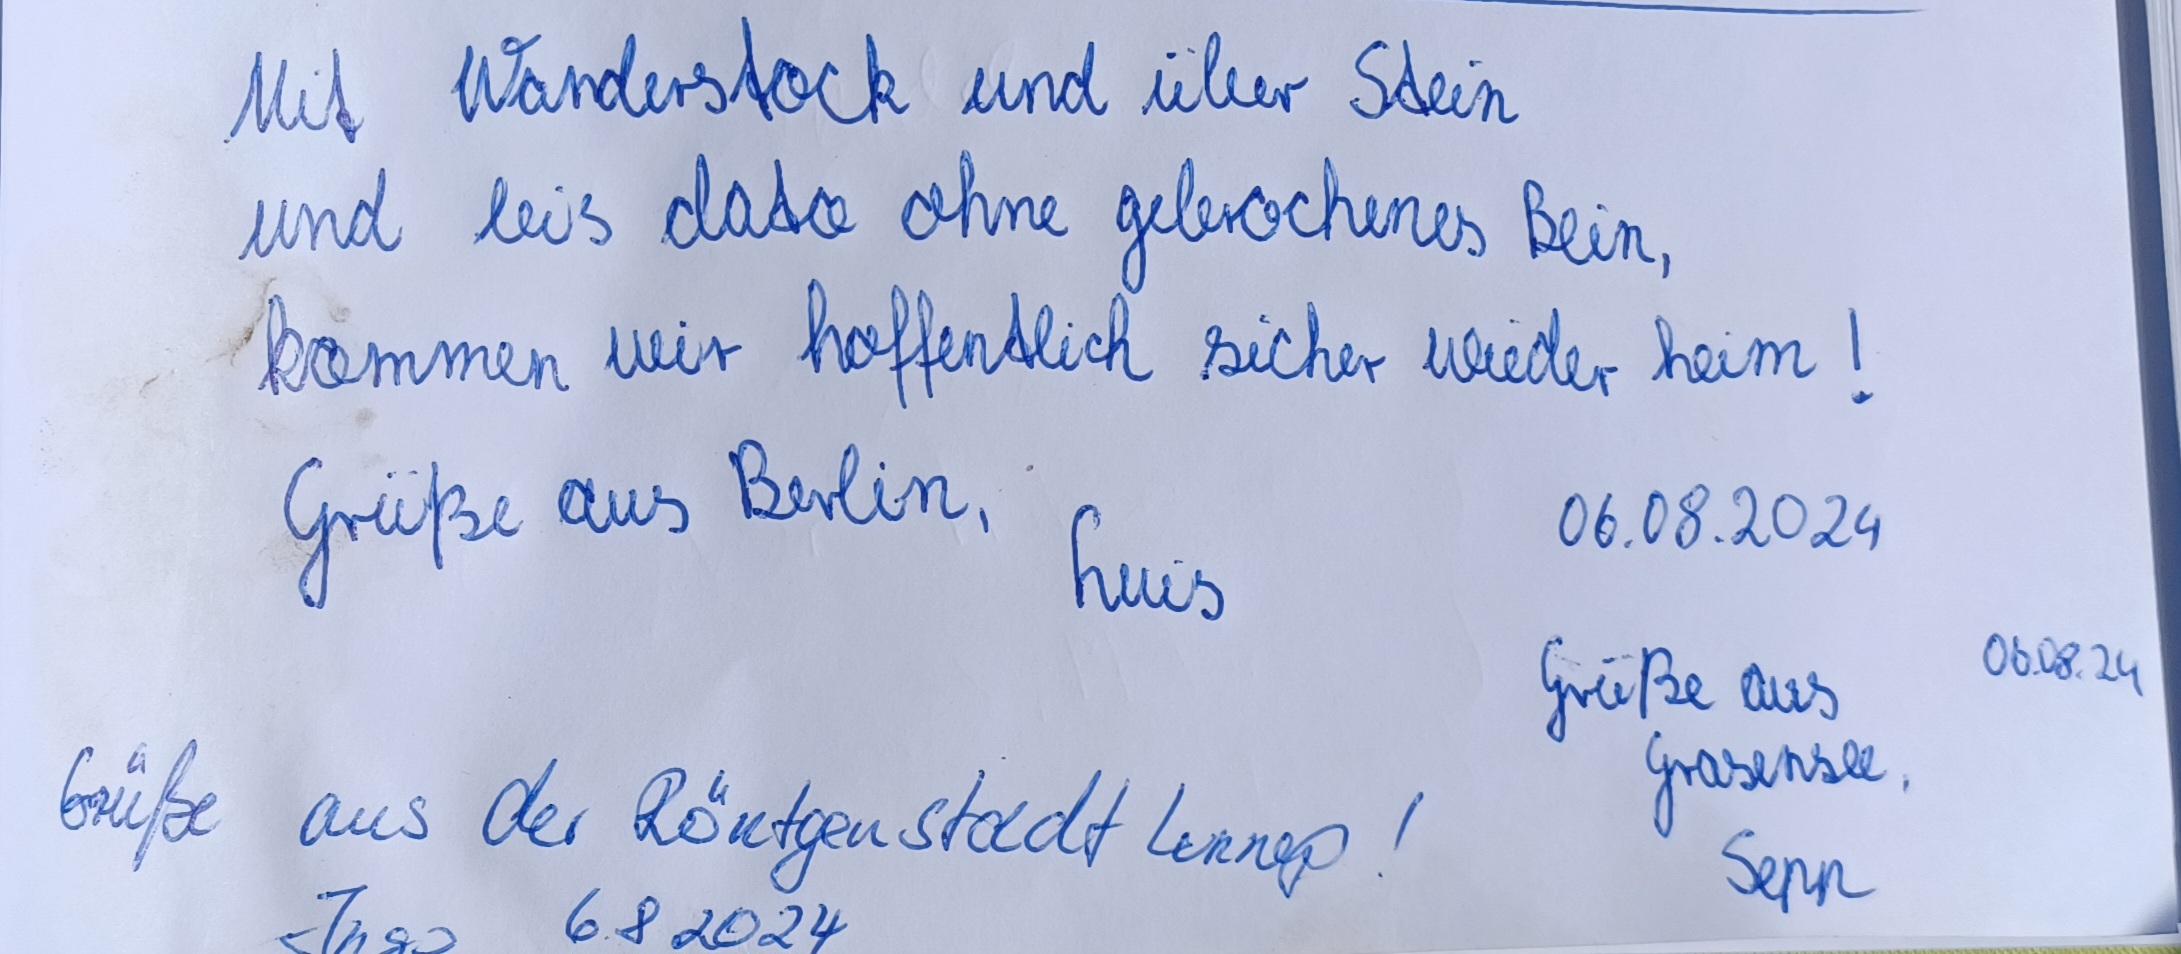 Mit Wanderstock und über Stein
und leis dato ohne gebrochenes Bein,
kommen wir hoffentlich sicher wieder heim!
Grüße aus Berlin,
Luis
06.08.2024
Grüße aus
Grasensee,
Sepp
06.08.24
Grüße aus der Röntgenstadt Lennep!
Ingo 6.8.2024